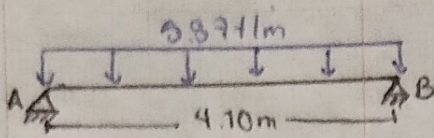 9.87 t/m
A B
4.10m